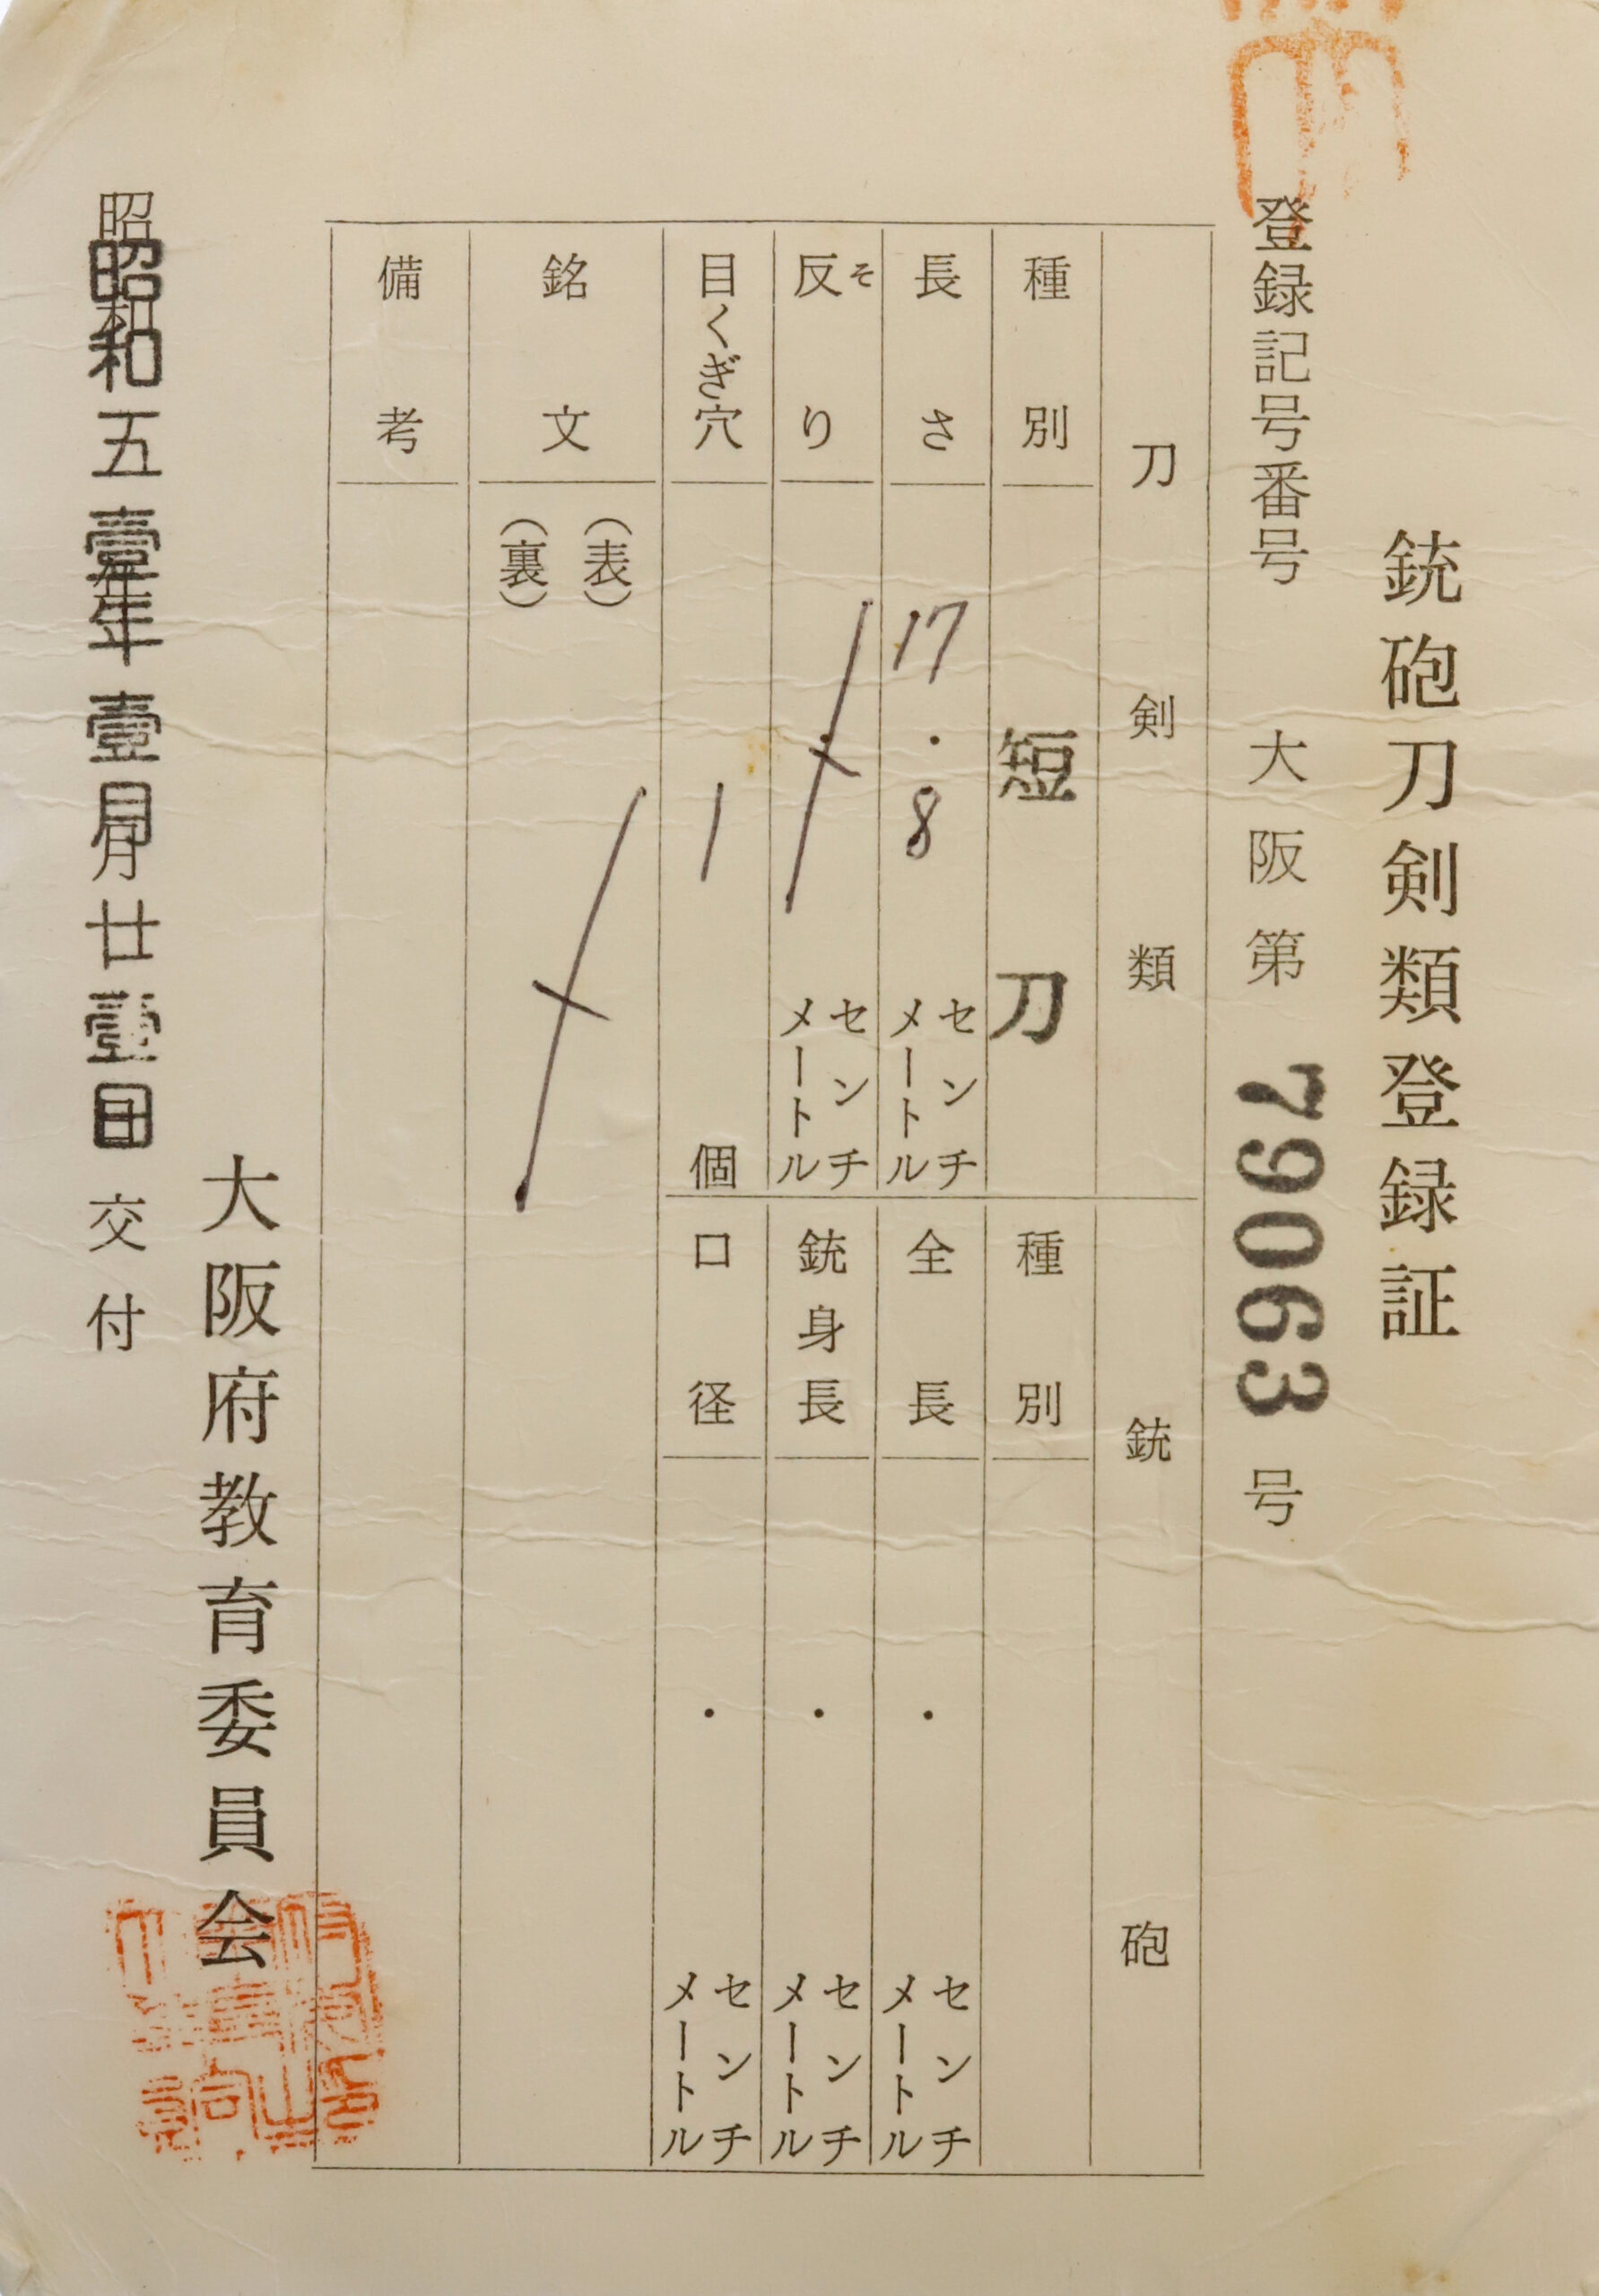 銃砲刀剣類登録証
登録記号番号 大阪第 79063 号
刀剣類
種別 短刀
長さ 17.8 センチメートル
反り そ センチメートル
目くぎ穴 1 個
銘文 (表)
(裏)
備考
銃砲
種別
全長 ・ センチメートル
銃身長 ・ センチメートル
口径 ・ センチメートル
大阪府教育委員会
昭和五壹年壹月廿壹日交付